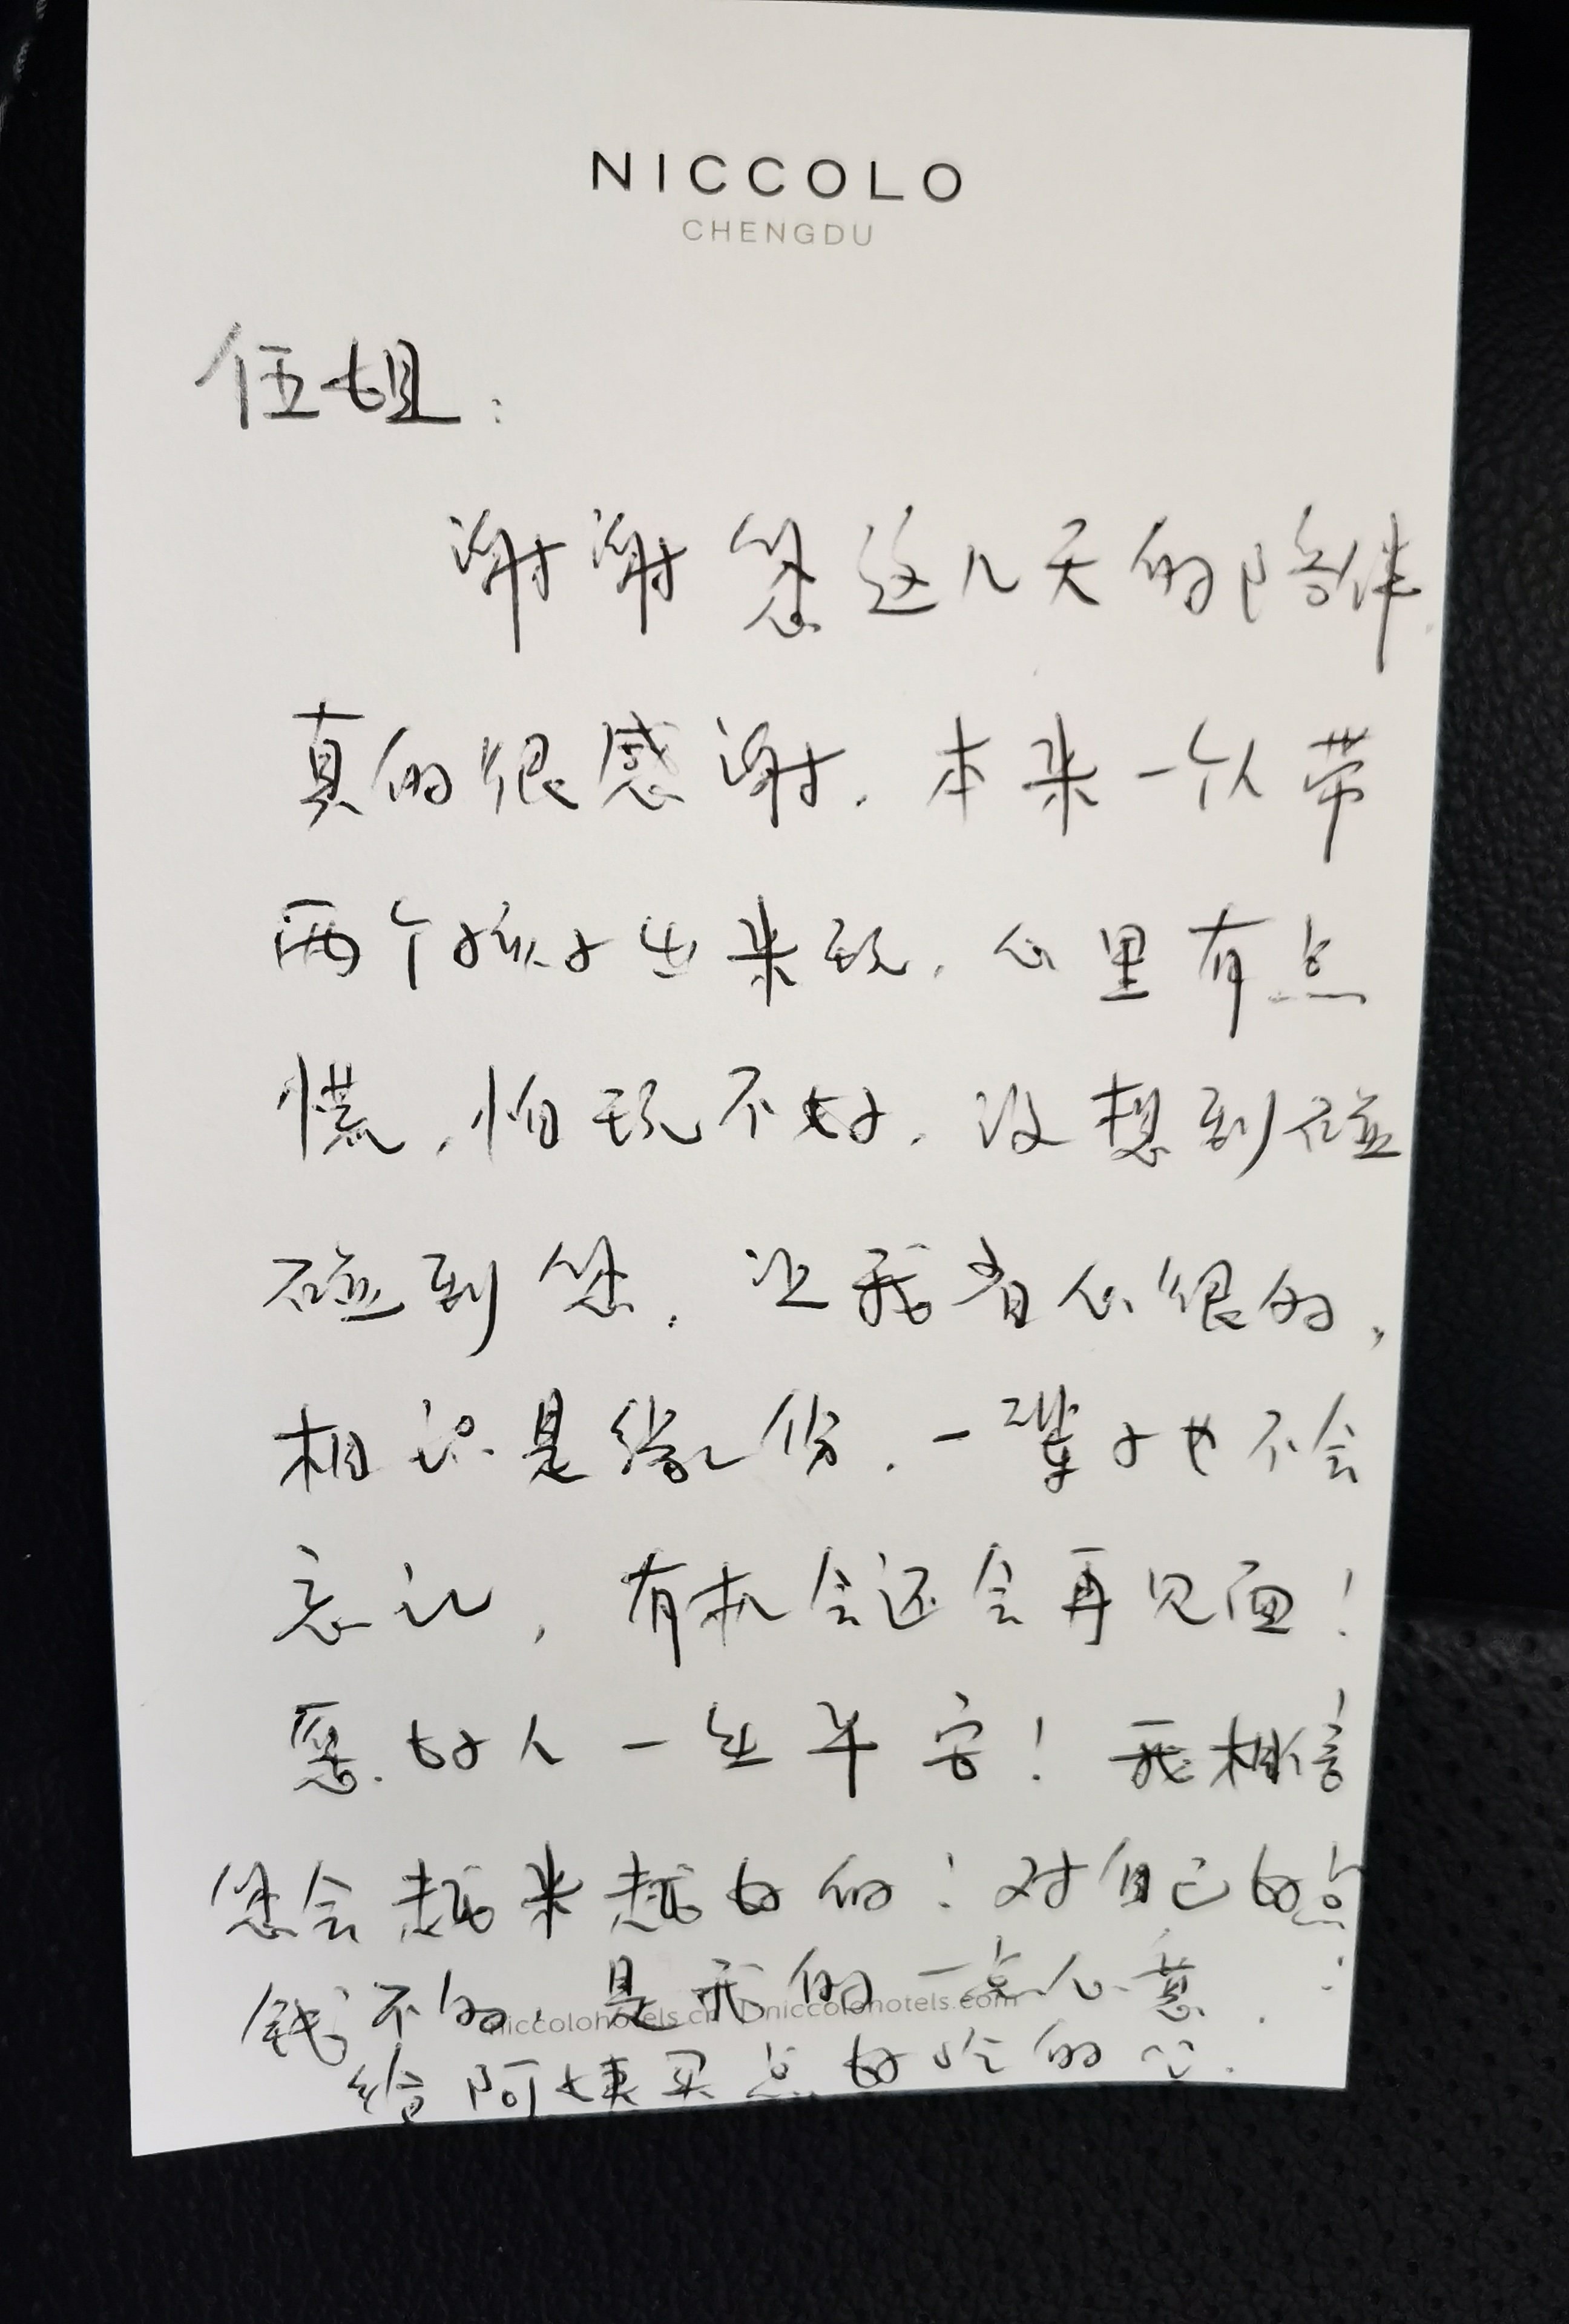 NICCOLO
CHENGDU
伍姐:
谢谢您这几天的陪伴,
真的很感谢.本来一个人带
两个孩子出来玩.心里有点
慌,怕玩不好.没想到碰
碰到您.让我省心很的,
相识是缘份.一辈子也不会
忘记,有机会还会再见面!
愿好人一生平安!我相信
您会越来越好的!对自己好点
钱不多.是我的一点心意.
niccolohotels.cn niccolohotels.com
给阿姨买点好吃的